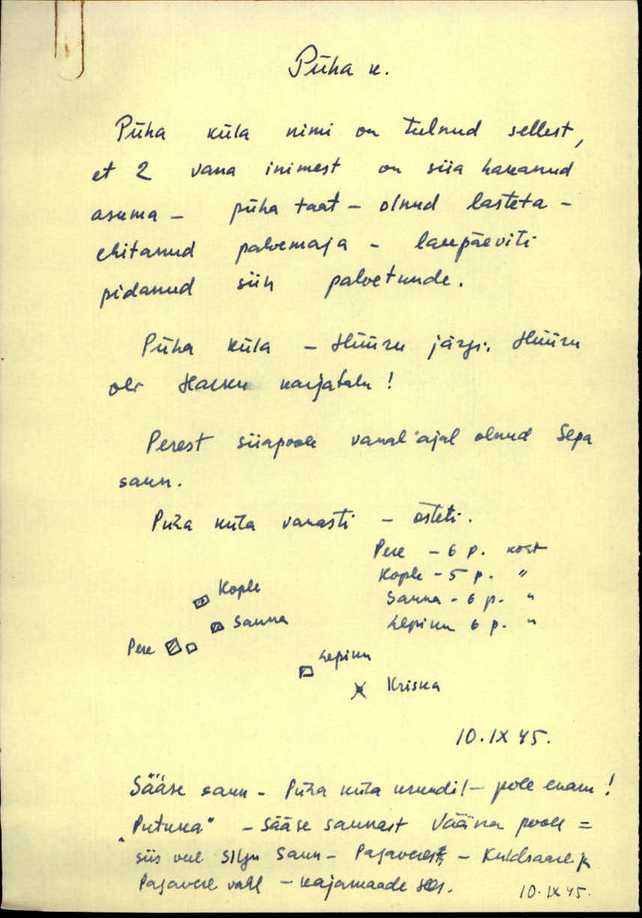 Püha k.
Püha küla nimi on tulnud sellest,
et 2 vana inimest on siia hakanud
asuma – püha taat – olnud lasteta –
ehitanud palvemaja – laupäeviti
pidanud siin palvetunde.
Püha küla – Hüüru järgi. Hüüru
oli Harku karjatalu!
Perest siiapoole vanal ajal olnud Sepa
saun.
Püha küla vanasti – osteti.
Pere – 6 p. kost
Kople – 5 p. "
Sauna – 6 p. "
Lepiku 6 p. "
Kople
Sauna
Pere
Lepiku
Kriska
10.IX 45.
Sääse saun – Püha küla – pole enam!
"Putuka" – Sääse saunast Vääna poole =
siis veel Silju Saun – Pajaverest – Kuldsaare ja
Pajavere vahl – kajamaade
10.IX 45.